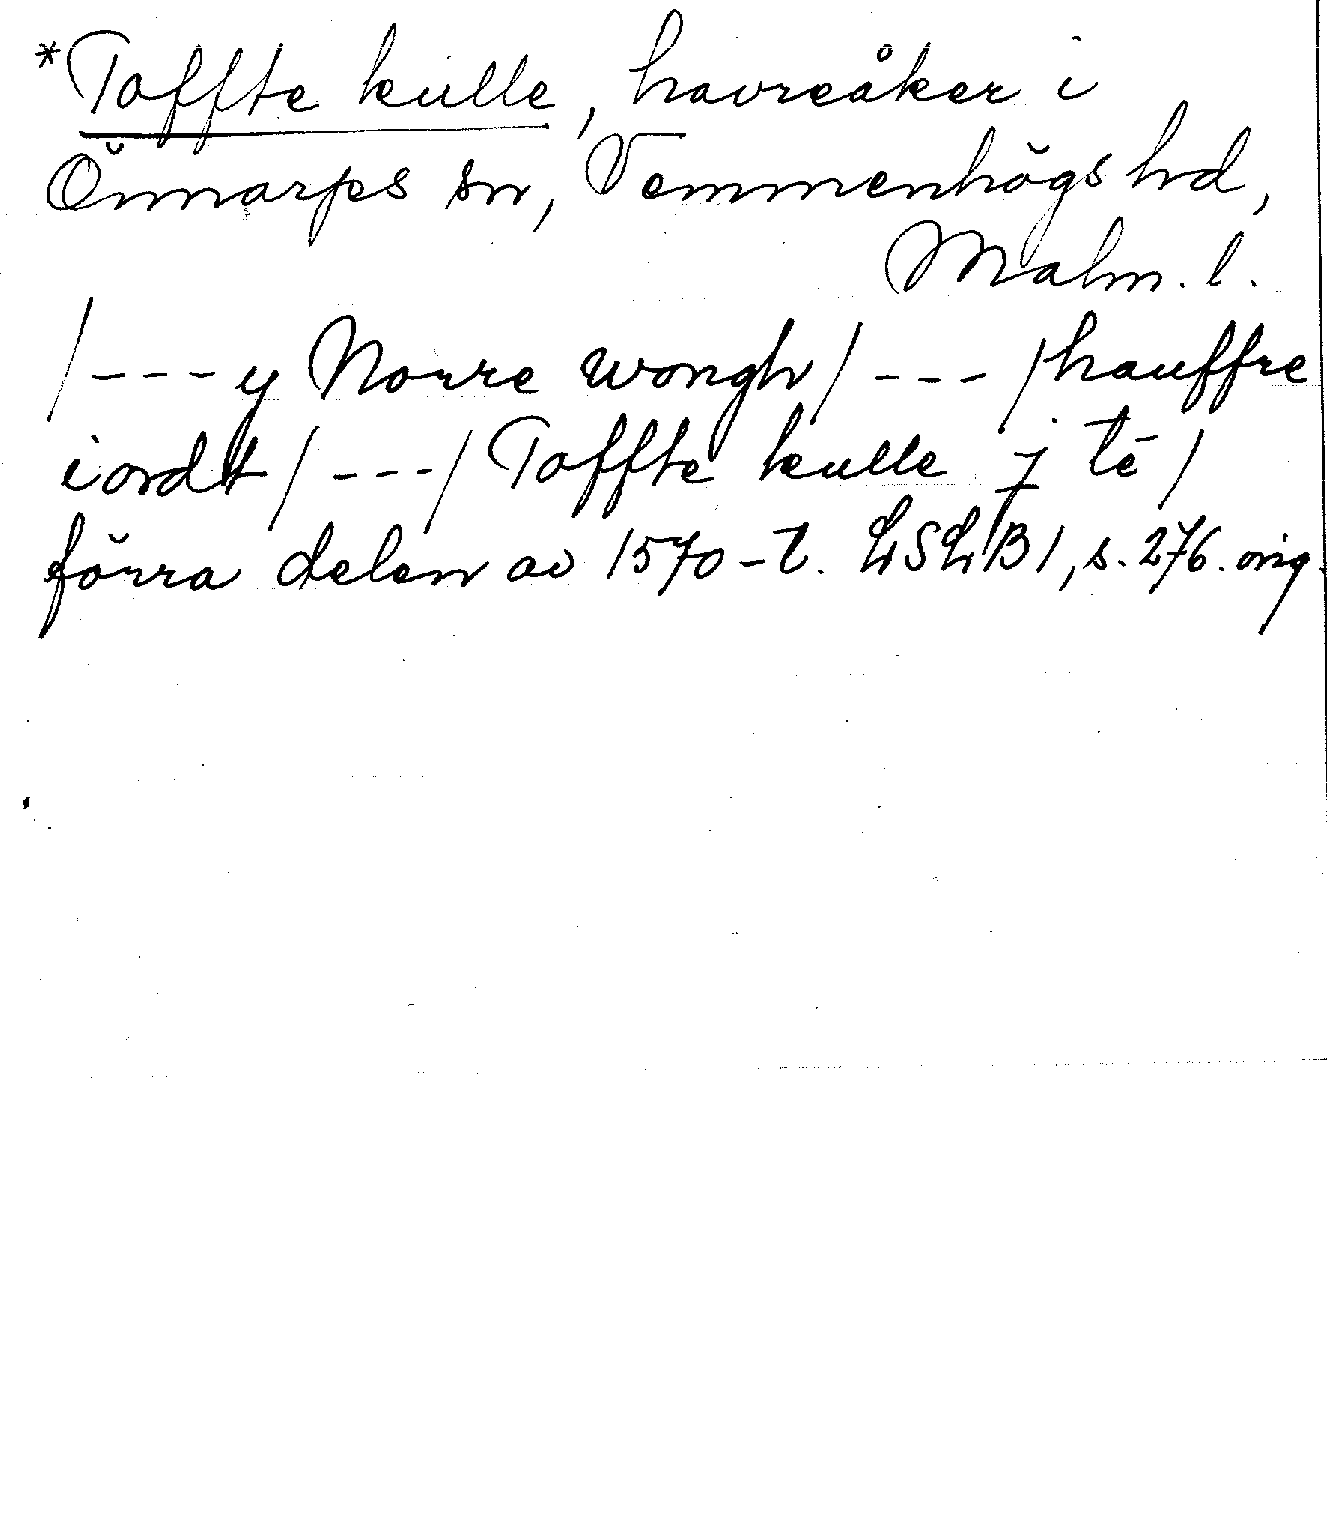 *Toffte kulle, havreåker i
Önnarps sn, Vemmenhögs hd,
Malm. l.
/---y Norre wongh/---/hauffre
iordt/---/Toffte kulle j tē/
förra delen av 1570-t. LSLB1, s. 276. orig.